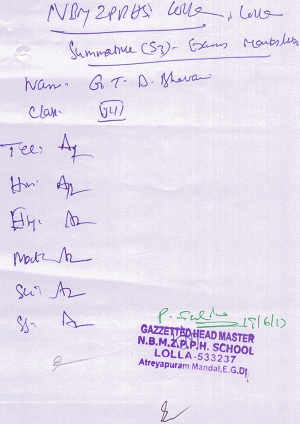 NBMZPPHS Lolla, Lolla
Summative (S3) - Exams Marks
Name: G. T. D. Bhavani
Class: VII
Tel: A2
Hin: A2
Eng: A2
Mat: A2
Sci: A2
SS: A2
P. 19/6/17
GAZZETTED HEAD MASTER
N.B.M.Z.P.P.H. SCHOOL
LOLLA-533237
Atreyapuram Mandal, E.G.Dt